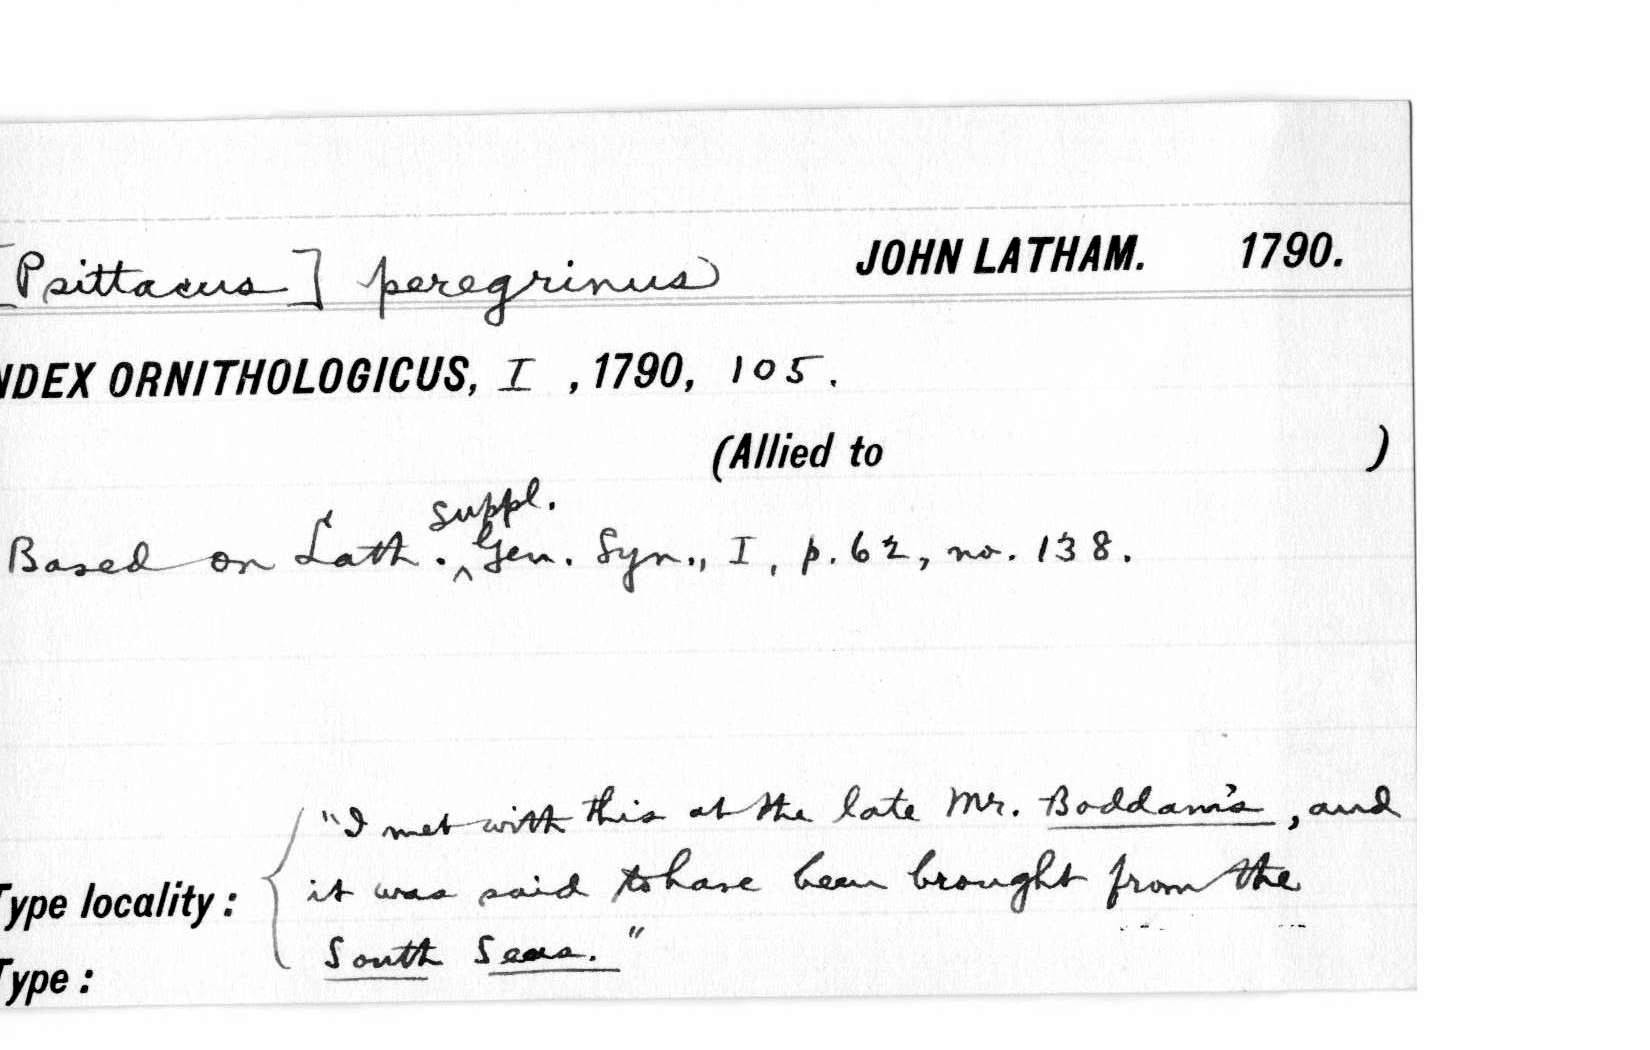 [Psittacus] peregrinus JOHN LATHAM. 1790.
NDEX ORNITHOLOGICUS, I , 1790, 105.
(Allied to )
suppl.
Based on Lath. ^ Gen. Syn., I, p. 62, no. 138.
"I met with this at the late Mr. Boddam's, and
Type locality: { it was said to have been brought from the
South Seas."
Type: